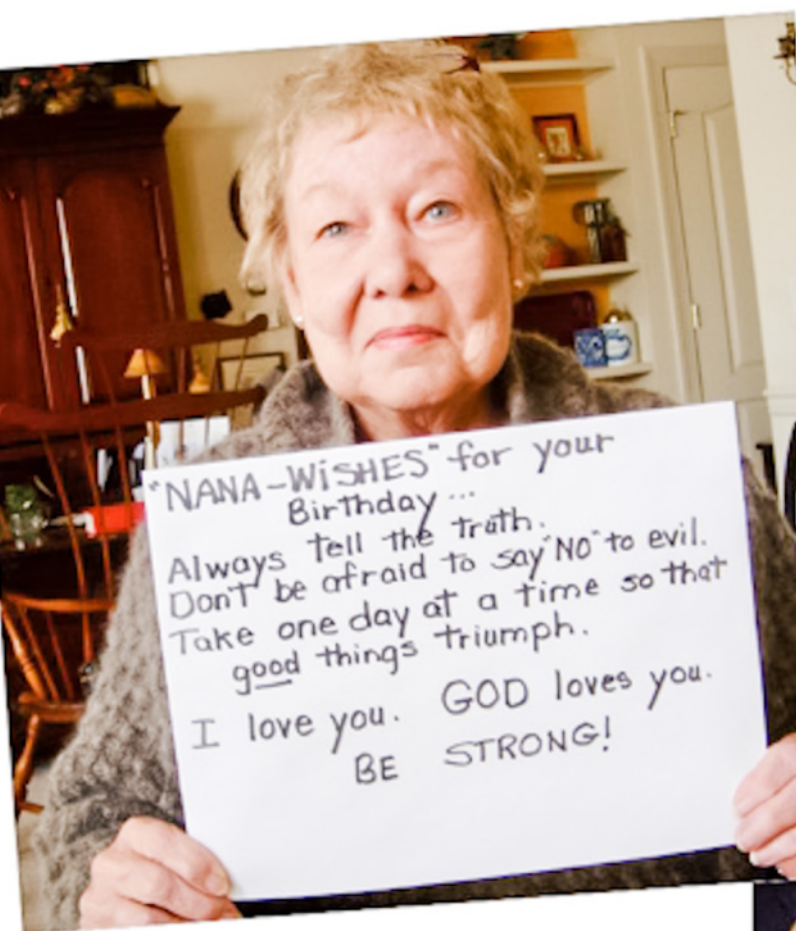 "NANA-WiSHES" for your
Birthday...
Always tell the truth.
Don't be afraid to say "NO" to evil.
Take one day at a time so that
good things triumph.
I love you. GOD loves you.
BE STRONG!